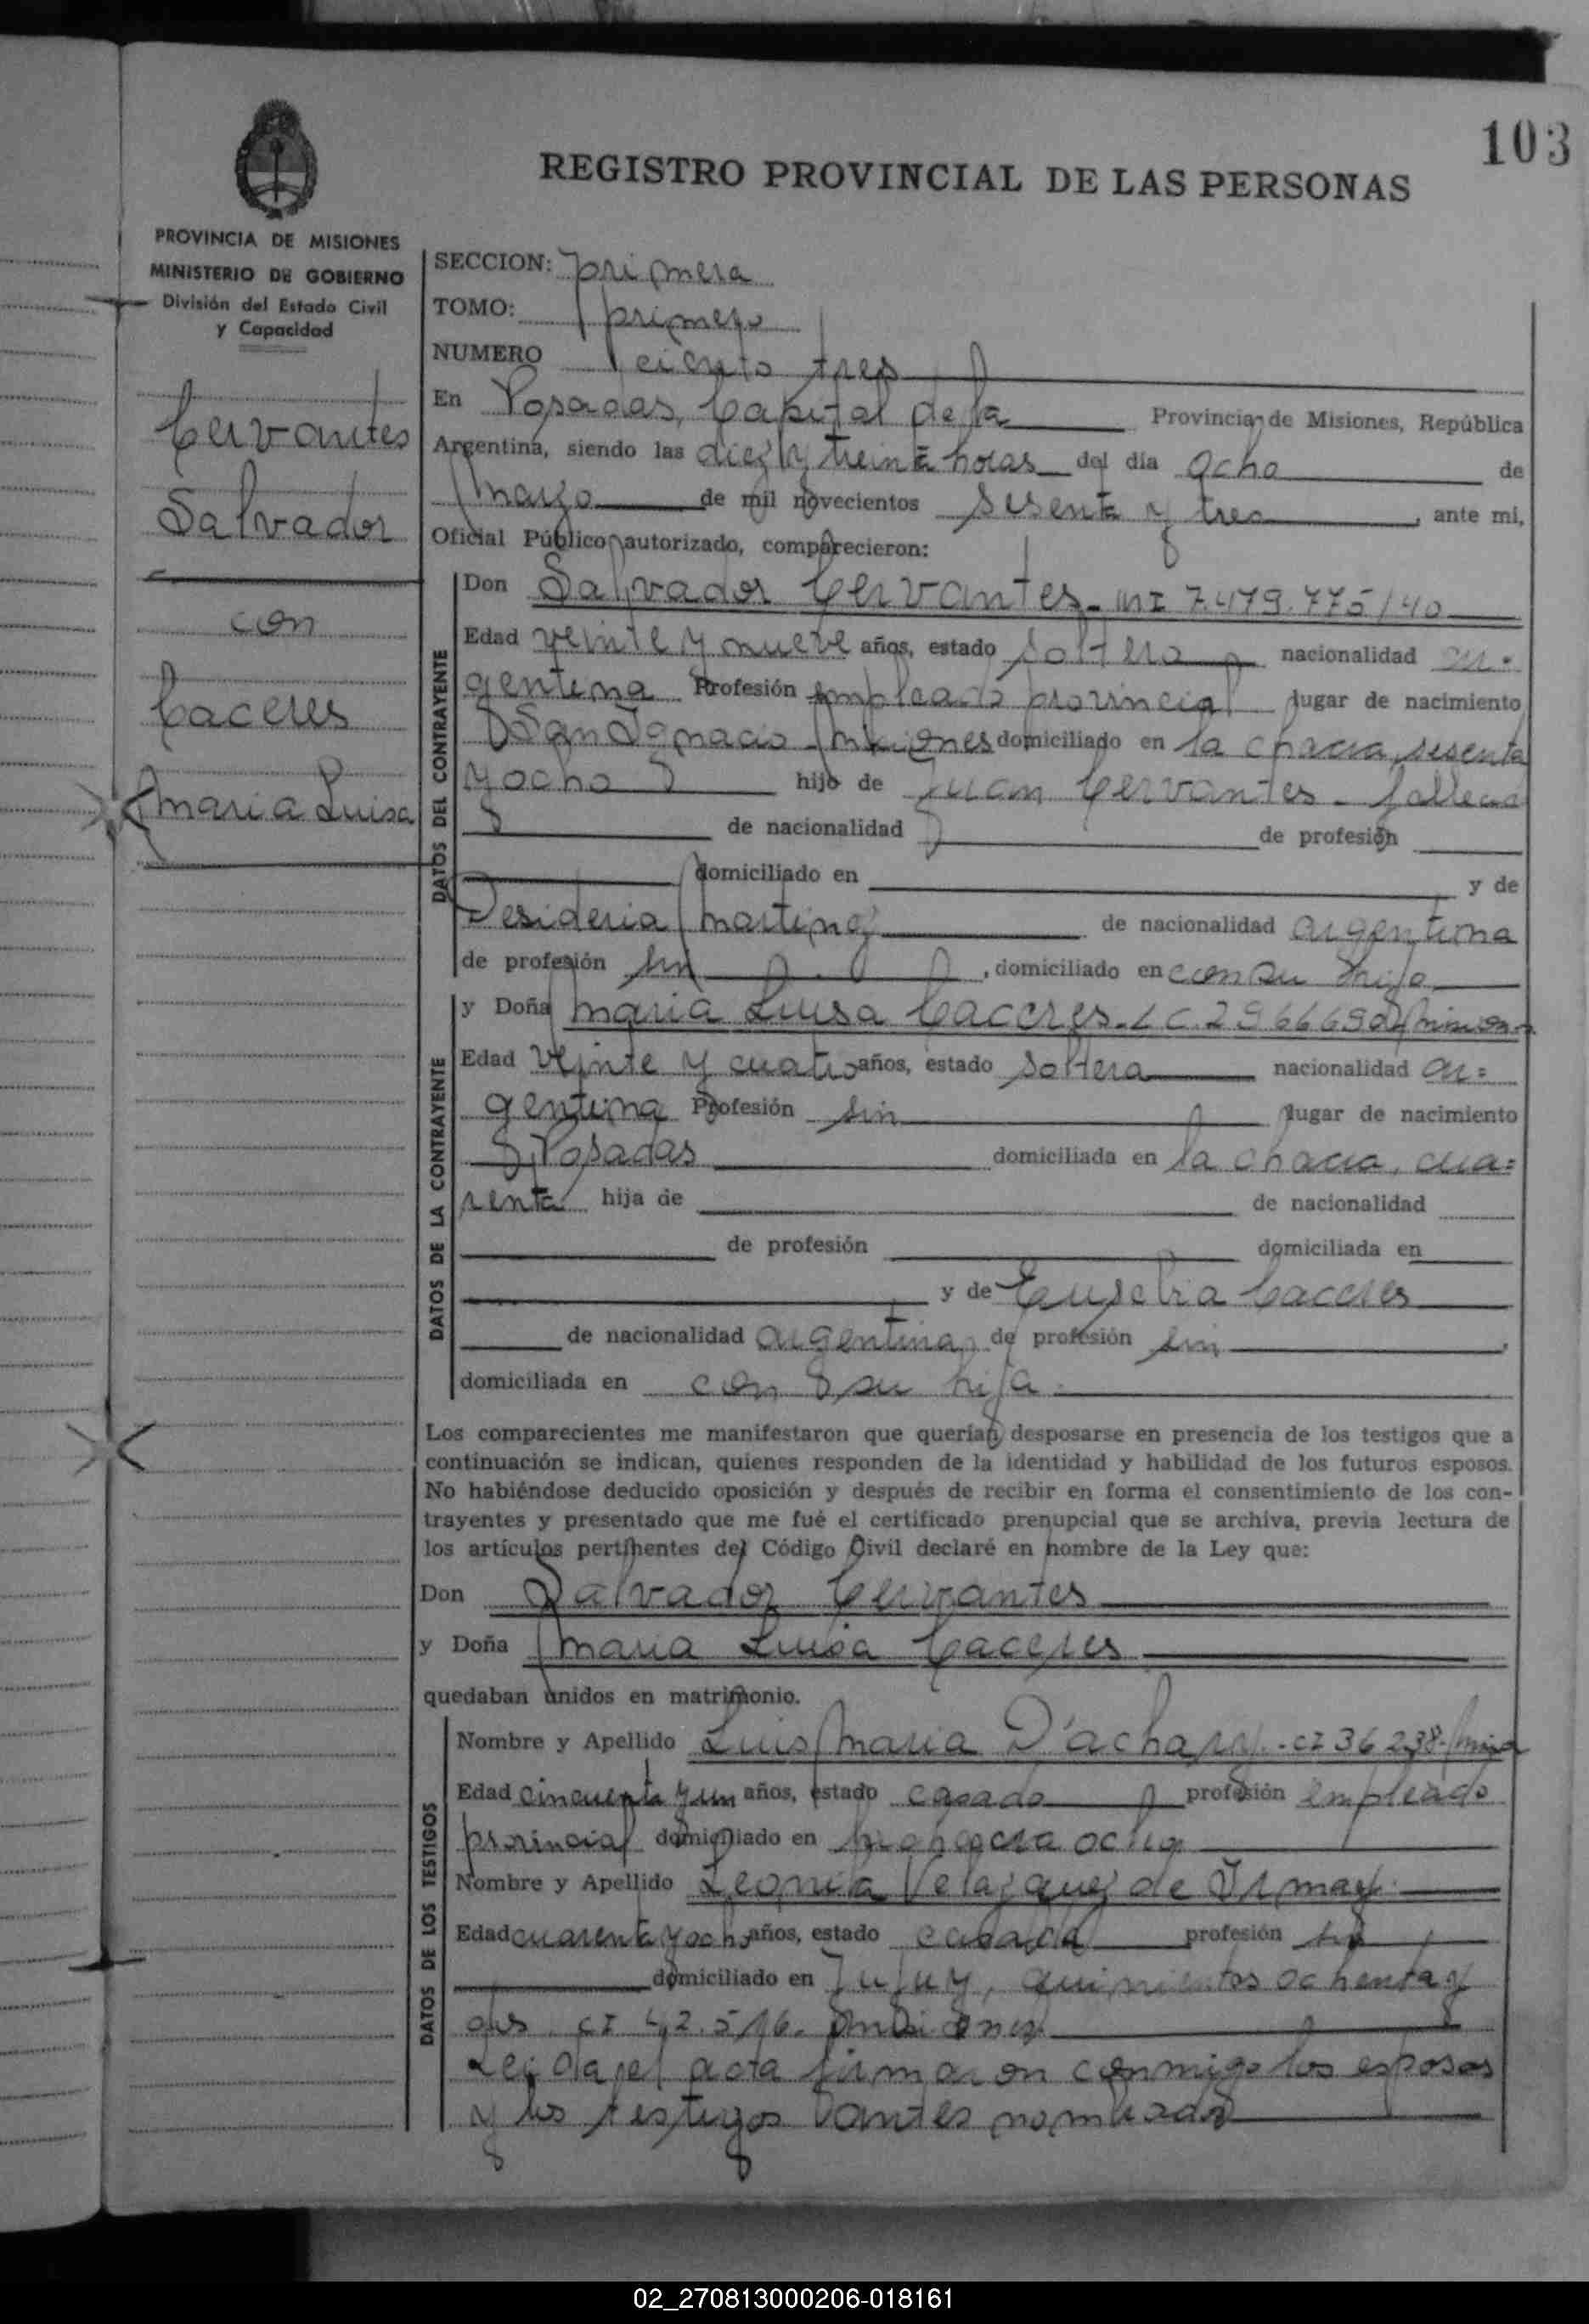 103
REGISTRO PROVINCIAL DE LAS PERSONAS
PROVINCIA DE MISIONES
MINISTERIO DE GOBIERNO
División del Estado Civil
y Capacidad
Cervantes
Salvador
con
Caceres
Maria Luisa
SECCION: primera
TOMO: primero
NUMERO ciento tres
En Posadas, Capital de la Provincia de Misiones, República
Argentina, siendo las diez y treinta horas del día ocho de
marzo de mil novecientos sesenta y tres, ante mi,
Oficial Público autorizado, comparecieron:
DATOS DEL CONTRAYENTE
Don Salvador Cervantes - MI 7.479.775/40
Edad veinte y nueve años, estado soltero nacionalidad ar=
gentina Profesión empleado provincial lugar de nacimiento
San Ignacio - Misiones domiciliado en la chacra, sesenta
y ocho hijo de Juan Cervantes - fallecido
de nacionalidad de profesión
domiciliado en y de
Desideria Martinez de nacionalidad argentina
de profesión sin, domiciliado en con su hijo
DATOS DE LA CONTRAYENTE
y Doña Maria Luisa Caceres - LC. Misiones
Edad veinte y cuatro años, estado soltera nacionalidad ar=
gentina Profesión sin lugar de nacimiento
Posadas domiciliada en la chacra, cua=
renta hija de de nacionalidad
de profesión domiciliada en
y de Eusebia Caceres
de nacionalidad argentina, de profesión sin,
domiciliada en con su hija.
Los comparecientes me manifestaron que querían desposarse en presencia de los testigos que a
continuación se indican, quienes responden de la identidad y habilidad de los futuros esposos.
No habiéndose deducido oposición y después de recibir en forma el consentimiento de los con-
trayentes y presentado que me fué el certificado prenupcial que se archiva, previa lectura de
los artículos pertinentes del Código Civil declaré en nombre de la Ley que:
Don Salvador Cervantes
y Doña Maria Luisa Caceres
quedaban unidos en matrimonio.
DATOS DE LOS TESTIGOS
Nombre y Apellido Luis Maria D'achary - CI 36.238-
Edad cincuenta y un años, estado casado profesión empleado
provincial domiciliado en ocho
Nombre y Apellido Leonila Velazquez de
Edad cuarenta y ocho años, estado casada profesión sin
domiciliado en Jujuy, quinientos ochenta y
dos. CI 42.516. Misiones
Leida el acta firmaron conmigo los esposos
y los testigos antes nombrados
02_270813000206-018161